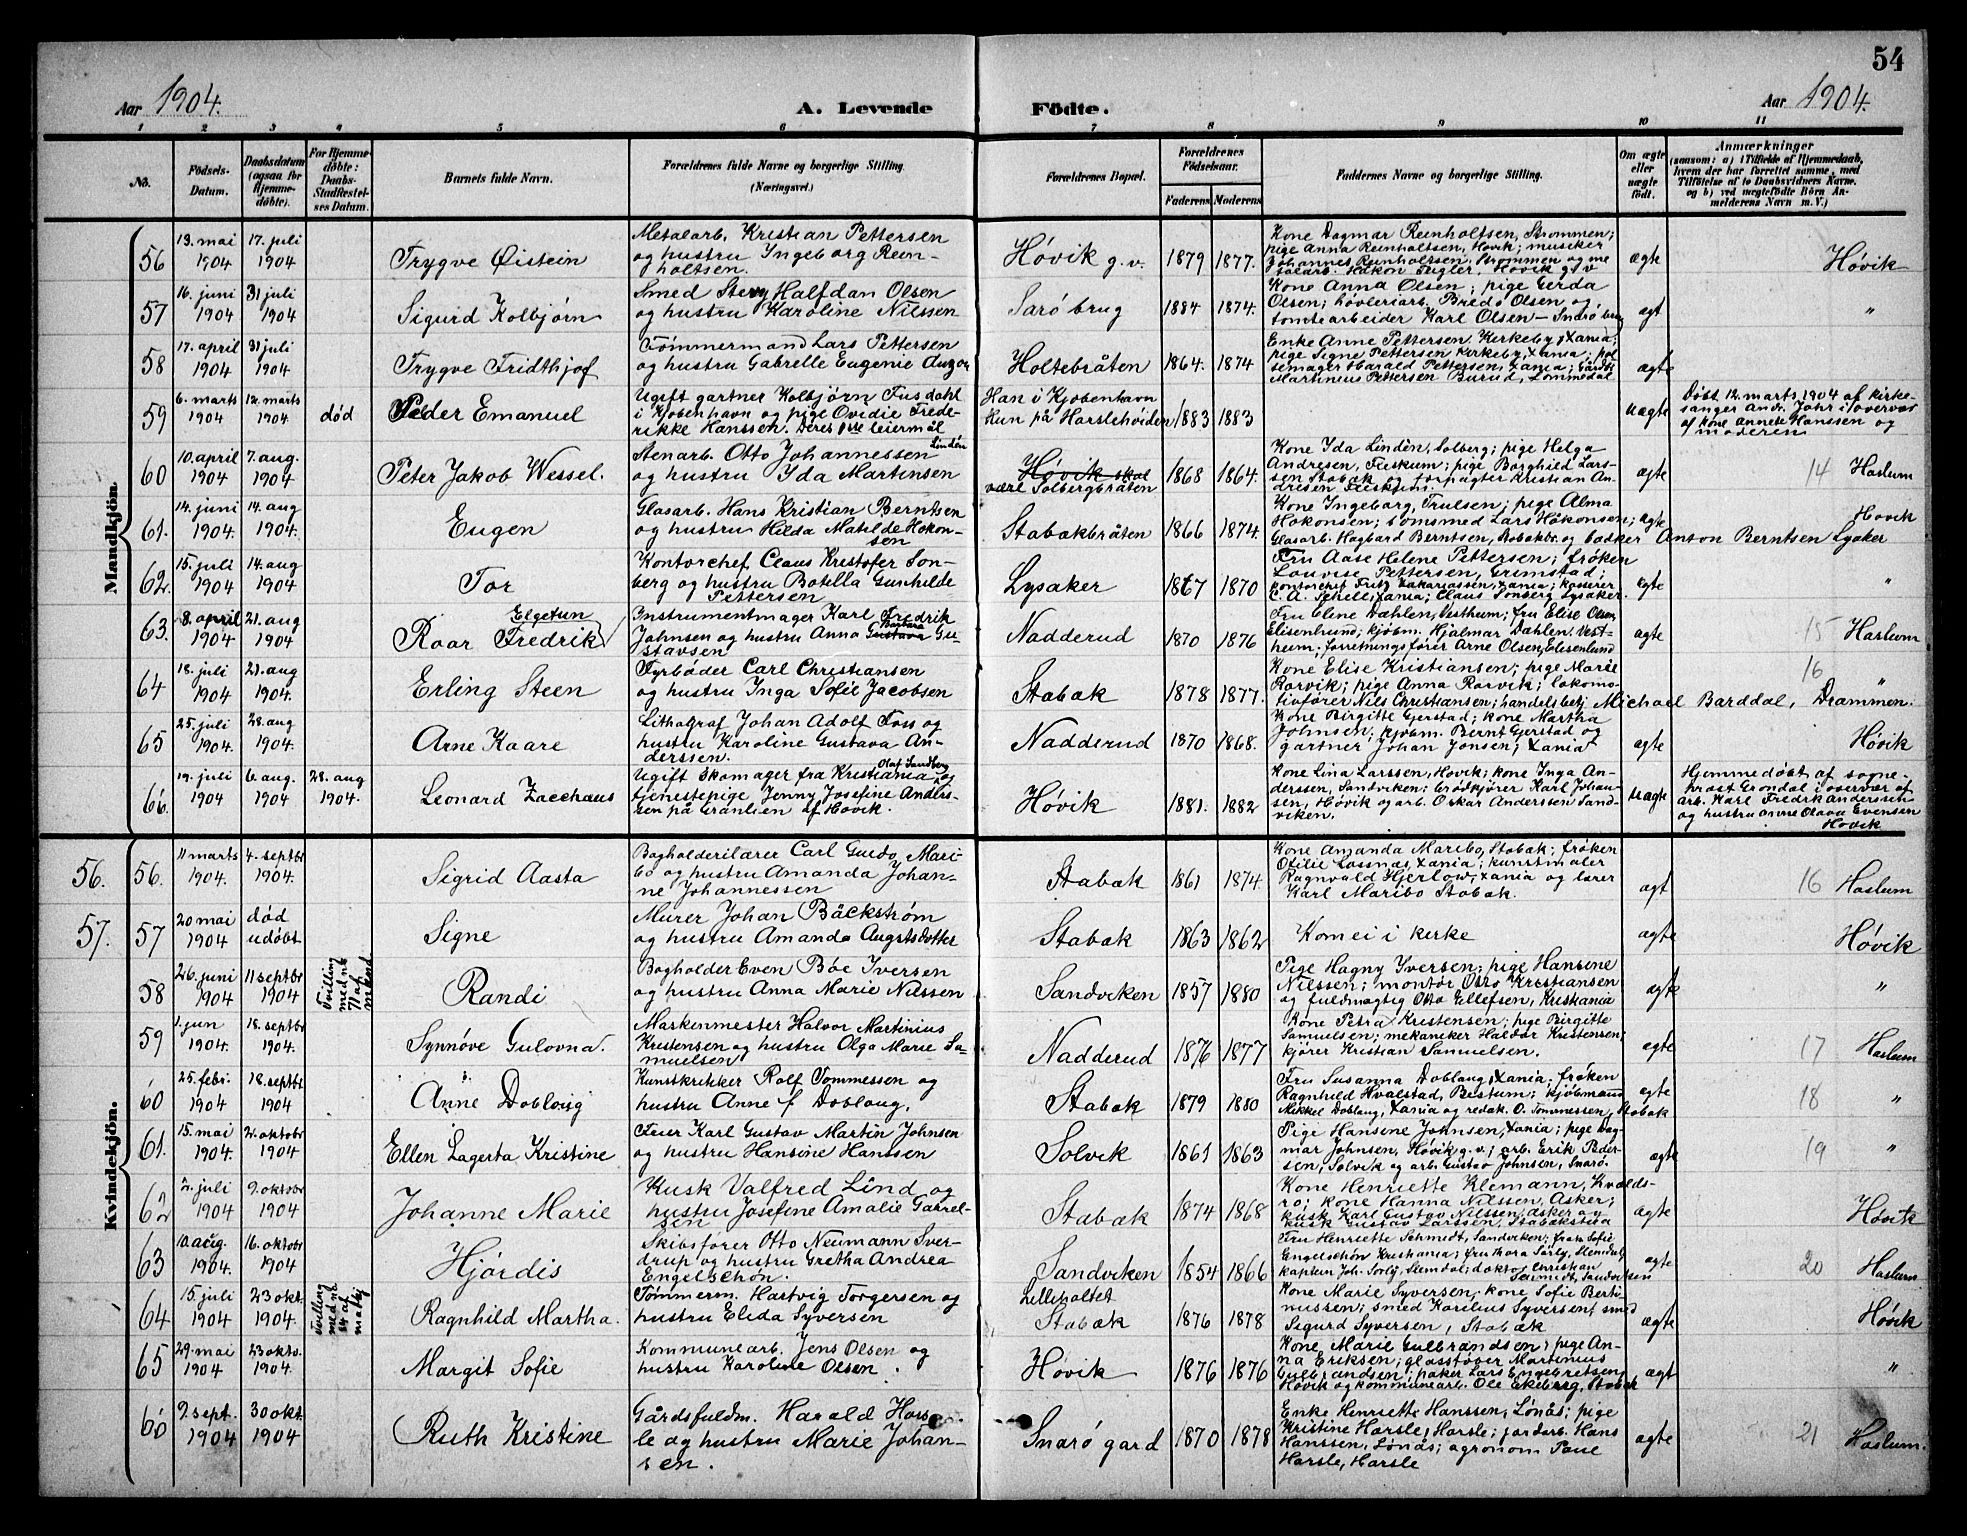 54
Aar 1904. A. Levende Födte. Aar 1904.
1 2 3 4 5 6 7 8 9 10 11
No.
Födsels-
Datum.
Daabsdatum
(ogsaa for
Hjemme-
döbte).
For Hjemme-
döbte:
Daabs-
Stadfæstel-
ses Datum.
Barnets fulde Navn.
Forældrenes fulde Navne og borgerlige Stilling.
(Næringsvei.)
Forældrenes Bopæl.
Forældrenes
Födselsaar.
Faderens Moderens
Faddernes Navne og borgerlige Stilling.
Om ægte
eller
uægte
født.
Anmærkninger
(saasom: a) i Tilfælde af Hjemmedaab,
hvem der har forrettet samme, med
Tilföielse af to Daabsvidners Navne,
og b) ved uægtefödte Börn An-
melderens Navn m. V.)
Mandkjön
56
13. mai
1904
17. juli
1904
Trygve Øistein
Metalarb. Kristian Pettersen
og hustru Ingeborg Rein-
holtsen.
Høvik g.v.
1879 1877.
Kone Dagmar Reinholtsen, Strømmen;
pige Anna Reinholtsen, Høvik; musiker
Johannes Reinholtsen, Strømmen og me
talarb. Håkon Fugler, Høvik g.v
ægte
Høvik
57
16. juni
1904
31 juli
1904
Sigurd Kolbjørn
Smed Halfdan Olsen
og hustru Karoline Nilssen
Sarø brug
1884 1874.
Kone Anna Olsen; pige Gerda
Olsen; høvleriarb. Bredo Olsen og
tomtearbeider Karl Olsen – Snarø brug
ægt
"
58
17. april
1904
31 juli
1904
Trygve Fridthjof
Tømmermand Lars Pettersen
og hustru Gabrelle Eugenie
Holtebråten
1864. 1874
Enke Anne Pettersen, Kirkeby, Xania;
pige Signe Pettersen Kirkeby, Xania; pøl
semager Harald Pettersen, Xania; Gårdbr
Martinius Pettersen Burud, Lommedal
ægte
59
6. marts
1904
12. marts
1904
død
Peder Emanuel
Ugift gartner Kolbjørn Fusdahl
i Kjøbenhavn og pige Ovidie Frede-
rikke Hanssen. Deres 1ste leiermål
Han i Kjøbenhavn
Hun på Harslehøiden
1883 1883
uægte
Døbt 12. marts 1904 af kirke-
sanger Andr. Johr i overvær
af kone Annete Hanssen og
moderen
60
10. april
1904
7. aug.
1904
Peter Jakob Wessel.
Stenarb. Otto Johannessen
og hustru Ida Martinsen
Lindén
Høvik skal
være Solbergbråten
1868 1864.
Kone Ida Lindén, Solberg; pige Helga
Andresen, Feiskum; pige Borghild Lars-
sen Stabæk og forpagter Kristian An-
dresen Feiskum.
ægte
14 Haslum
61.
14. juni
1904.
14. aug
1904.
Eugen
Glasarb. Hans Kristian Berntsen
og hustru Hilda Matilde Hokon-
sen
Stabækbråten
1866 1874.
Kone Ingeborg Trulsen; pige Alma
Hokonsen; bomsmed Lars Håkonsen;
Glasarb. Hagbard Berntsen, Stabækbr. og bødker Anton Berntsen Lysaker
ægte
Høvik
62.
15. juli
1904
14. aug
1904
Tor
Kontorchef Claus Kristofer Son-
berg og hustru Botella Gunhilde
Pettersen
Lysaker
1867 1870
Fru Aase Helene Pettersen; frøken
Louvise Pettersen, Grimstad;
kontorchef Fritz Zakariassen, Xania; kaserer
C. A. Schelle, Xania; Claus Sonberg Lysaker.
ægte
"
63.
8. april
1904
21. aug
1904
Elgetun
Roar Fredrik
Instrumentmager Karl Fredrik
Johnsen og hustru Anna Gustava Gu-
stavsen
Barbara
Nadderud
1870 1876
Fru Eline Dæhlen, Vestheim; fru Elise Olsen,
Elisenlund; kjøbm. Hjalmar Dæhlen, Vest-
heim; forretningsfører Arne Olsen, Elisenlund
ægte
15 Haslum
64
18. juli
1904
21. aug
1904.
Erling Steen
Fyrbøder Carl Christiansen
og hustru Inga Sofie Jacobsen
Stabæk
1878 1877.
Kone Elise Kristiansen; pige Marie
Rørvik; pige Anna Rørvik; lokomo-
tivfører Nils Christiansen; handelsbetj Michael Barddal, Drammen.
16 "
65
25. juli
1904.
28. aug
1904.
Arne Kaare
Lithograf Johan Adolf Foss og
hustru Karoline Gustava An-
derssen.
Nadderud
1870 1868.
Kone Birgitte Gjerstad; kone Martha
Johnsen; kjøbm. Bernt Gjerstad og
gartner Johan Jonsen, Xania
ægte
Høvik
66.
19. juli
1904
6. aug.
1904
28. aug
1904.
Leonard Zacchæus
Ugift skomager fra Kristiania og
tjenestepige Jenny Josefine Anders-
sen på Granlien af Høvik.
Olaf Sandberg
Høvik
1881. 1882
Kone Lina Larssen, Høvik; kone Inga An-
derssen, Sandviken; brødkjører Karl Johan-
sen, Høvik og arb. Oskar Anderssen Sand-
viken.
uægte
Hjemmedøbt af sogne-
prest Grøndal i overvær af
arb. Karl Fredrik Anderssen
og hustru Anne Olava Evensen
Høvik
Kvindekjön.
56. 56.
11 marts
1904.
4. septbr
1904.
Sigrid Aasta
Bogholderilærer Carl Guido Mari-
bo og hustru Amanda Johan-
ne Johannessen
Stabæk
1861 1874.
Kone Amanda Maribo, Stabæk; frøken
Otilie Lossnæs, Xania; kunstmaler
Ragnvald Hjerlow, Xania og lærer
Karl Maribo Stabæk.
ægt
16 Haslum
57. 57
20 mai
1904
død
udøbt
Signe
Murer Johan Bäckstrøm
og hustru Amanda Augstsdotter
Stabæk
1863 1862
Kom ei i kirke
ægte
Høvik
58
26. juni
1904
11 septbr
1904
Tvilling
med no
71 af
mkend
Randi
Bogholder Even Bøe Iversen
og hustru Anna Marie Nilssen
Sandviken
1857 1880
Pige Hagny Iversen; pige Hansine
Nilssen; montør Otto Kristiansen
og fuldmægtig Otto Ellefsen, Kristiania
ægte
"
59
1. jun
1904.
18. septbr
1904.
Synnøve Gulovna.
Maskenmester Halvor Martinius
Kristensen og hustru Olga Marie Sa-
muelsen
Nadderud
1876 1877
Kone Petra Kristensen; pige Birgitte
Samuelsen; mekaniker Haldor Kristensen;
kjører Kristian Samuelsen.
ægte
17 Haslum
60
25. febr.
1904
18. septbr
1904
Anne Dobloug
Kunstkritiker Rolf Tommessen og
hustru Anne f Doblaug.
Stabæk
1879 1880
Fru Susanna Doblaug, Xania; frøken
Ragnhild Hvalstad, Bestum; kjøbmand
Mikkel Doblaug, Xania og redak. O. Tommessen, Stabæk
ægte
18 "
61.
15. mai
1904.
2. oktobr
1904
Ellen Lagerta Kristine
Feier Karl Gustav Martin Johnsen
og hustru Hansine Hanssen
Solvik
1861 1863
Pige Hansine Johnsen, Xania; pige Dag-
mar Johnsen, Høvik g.v.; arb. Erik Peder-
sen, Solvik og arb. Gustav Johnsen, Snarø.
ægte
19 "
62
2. juli
1904
9. oktobr
1904
Johanne Marie
Kusk Valfred Lind og
hustru Josefine Amalie Garrel-
sen
Stabæk
1874 1868
Kone Henriette Klemann, Kvalds-
rø; kone Hanna Nilssen, Asker;
kusk Karl Gustav Nilssen, Asker og
kusk Gustav Larssen, Stabækstua
ægte
Høvik
63
10. aug.
1904.
16. oktobr
1904
Hjørdis
Skibsfører Otto Neumann Sver-
drup og hustru Gretha Andrea
Engelschøn.
Sandviken
1854 1866
Fru Henriette Schmidt, Sandviken; frøk Sofie
Engelschøn Kristiania; fru Thora Sørly, Slemdal;
kaptein Joh. Sørly, Slemdal; doktor Christian
Schmidt, Sandviken
ægte
20 Haslum
64
15. juli
1904
23 okt.
1904.
Tvilling
med no
54 af
mandkj
Ragnhild Martha.
Tømmerm. Hartvig Torgersen og
hustru Elida Syversen
Lilleholtet
Stabæk
1876 1878
Kone Marie Syversen; kone Sofie Berti-
nussen; smed Karilius Syversen; smed
Sigurd Syversen, Stabæk
ægte
Høvik
65
29. mai
1904
23 okto.
1904.
Margit Sofie
Kommunearb. Jens Olsen og
hustru Karoline Olsen.
Høvik
1876 1876
Kone Marie Gulbrandsen; pige An-
na Eriksen; glasstøber Martinius
Gulbrandsen; paker Lars Engebretsen,
Høvik og kommunearb. Ole Ekeberg, Stabæk
ægt
"
66
9. sept.
1904
30 okt.
1904
Ruth Kristine
Gårdsfuldm. Harald Hars-
le og hustru Marie Johan-
sen.
Snarø gard
1870 1878
Enke Henriette Hanssen, Lønås; pige
Kristine Harsle, Harsle; jordarb. Hans
Hanssen, Lønås; agronom Paul
Harsle, Harsle
ægte
21 Haslum.